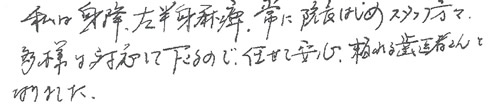 私は身障、左半身麻痺、常に院長はじめスタッフ方々、
多様な対応して下さるので、任せて安心、頼れる歯医者さんと
なりました。